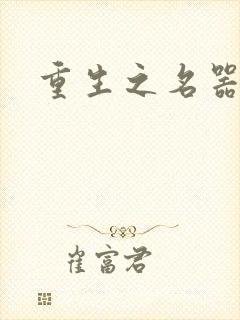 重生之名器
崔富君